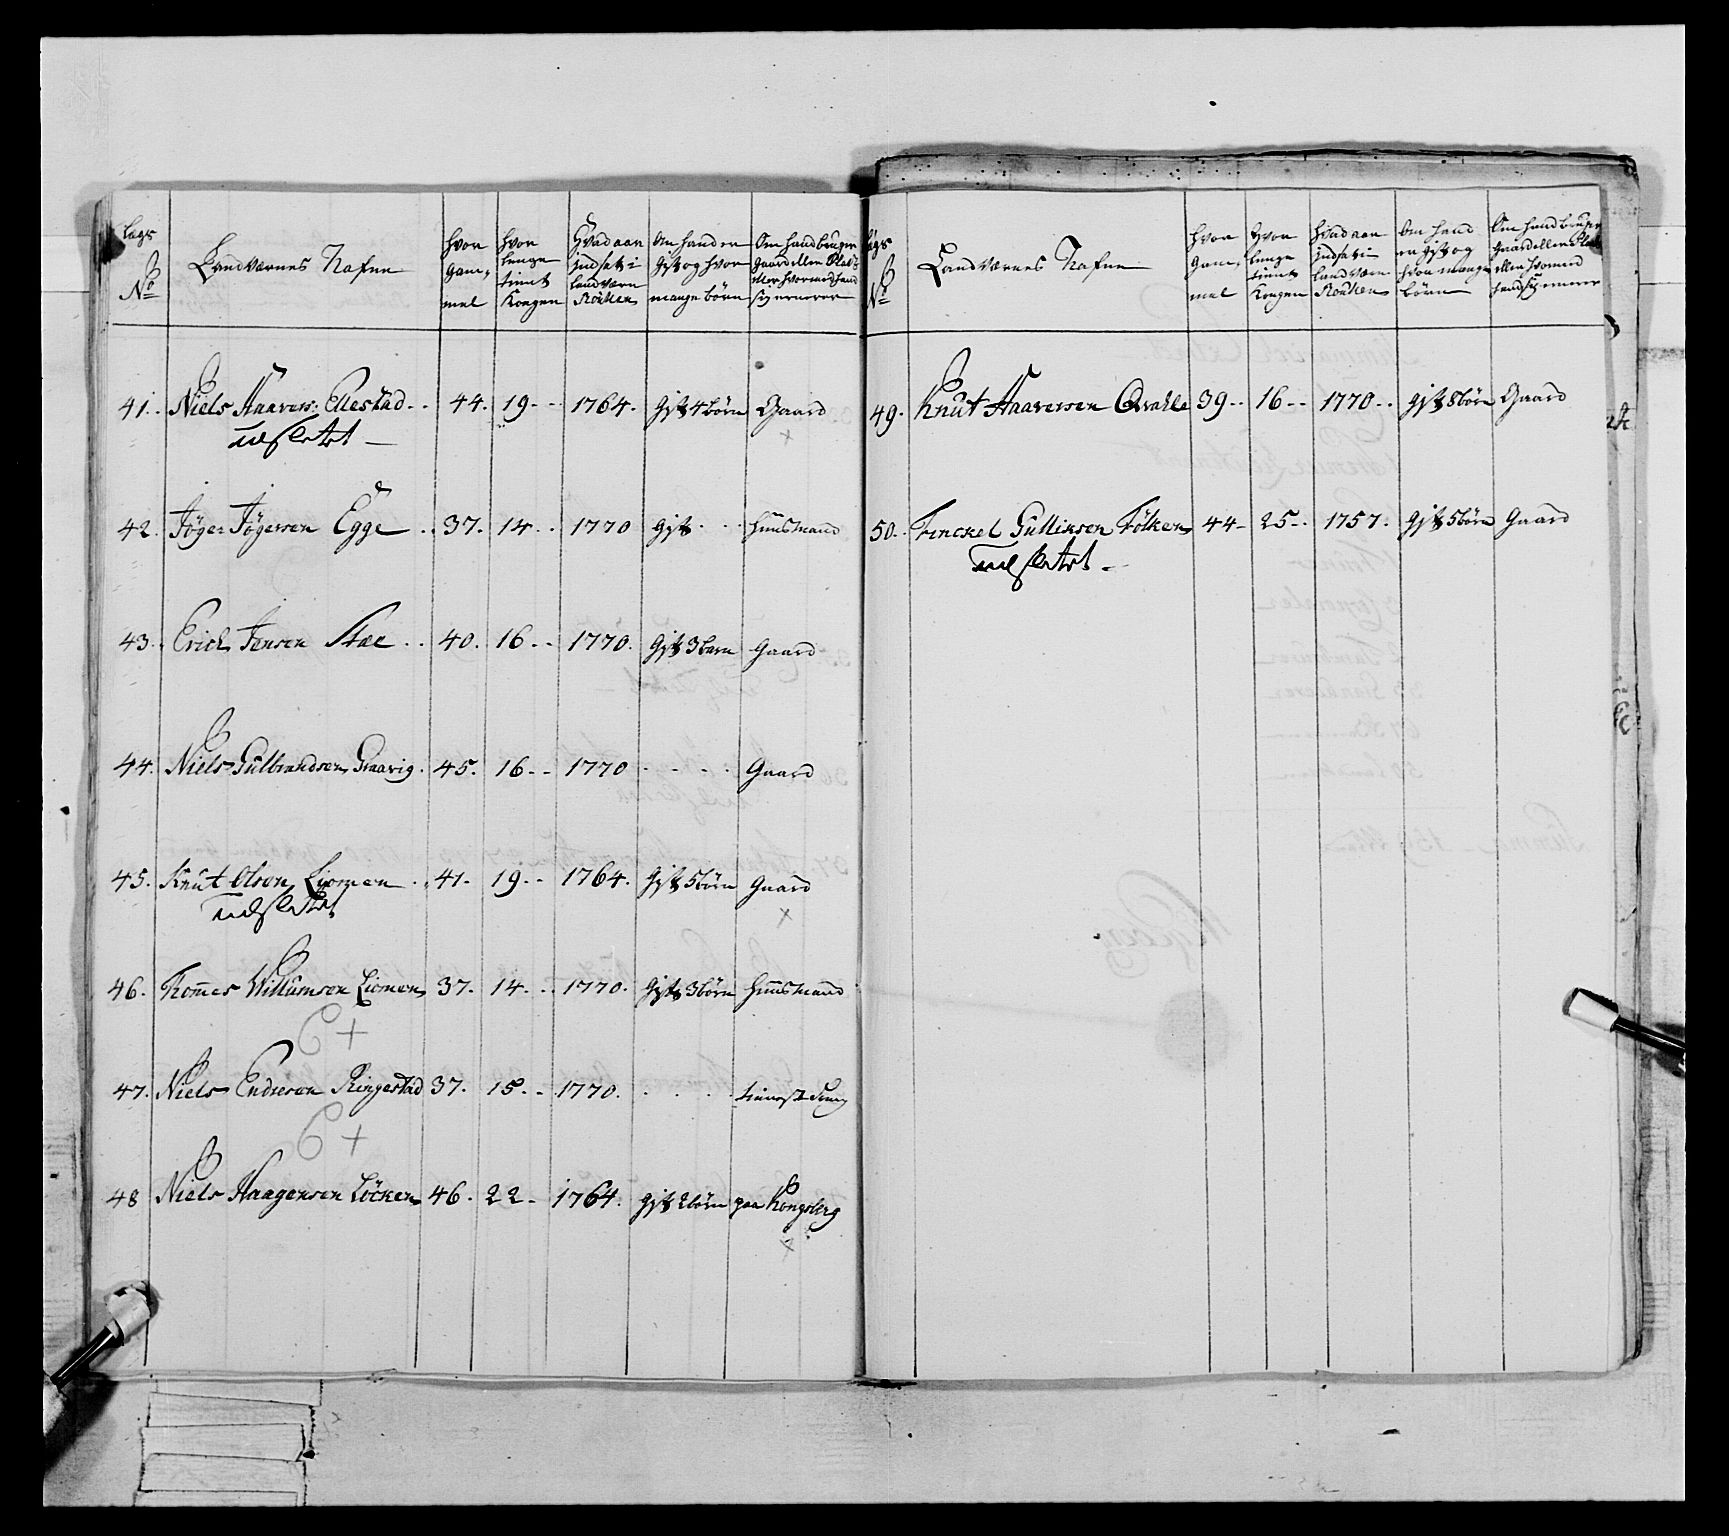 Lægs No
Landværnes Nafne
Hvor gammel
Hvor lenge tient Kongen
Hvad aar indsat i landværn Rollen
Om hand er gift og hvor mange börn
Om hand bruger gaard eller Plads eller hvormed hand sig ernerer
41. Niels Haavers: Ellestad 44. 19 1764. gift 4 börn Gaard
udslettet
42. Töger Tögersen Egge 37. 14 1770 gift Huusmand
43. Erich Jensen Stae 40. 16 1770. gift 3 barn Gaard
44. Niels Gulbrandsen Graavig 45. 16 1770 Gaard
45. Knut Olsen Liomen 41. 19 1764. gift 5 börn Gaard
udslettet
46. Tomes Willumsen Liomen 37. 14 1770. gift 3 börn Huusmand
47. Niels Endresen Ringestad 37. 15 1770.
48 Niels Haagensen Löcken 46. 22 1764. gift 2 börn paa Kongsberg
Lægs No
Landværnes Nafne
Hvor gammel
Hvor lenge tient Kongen
Hvad aar indsat i landværn Rollen
Om hand er gift og hvor mange börn
Om hand bruger gaard eller Plads eller hvormed hand sig ernerer
49. Knut Haaversen Qvahle 39 16 1770 gift 8 börn Gaard
50. Tinckel Gulliksen Fölken 44 25 1757. gift 5 börn Gaard
udslettet